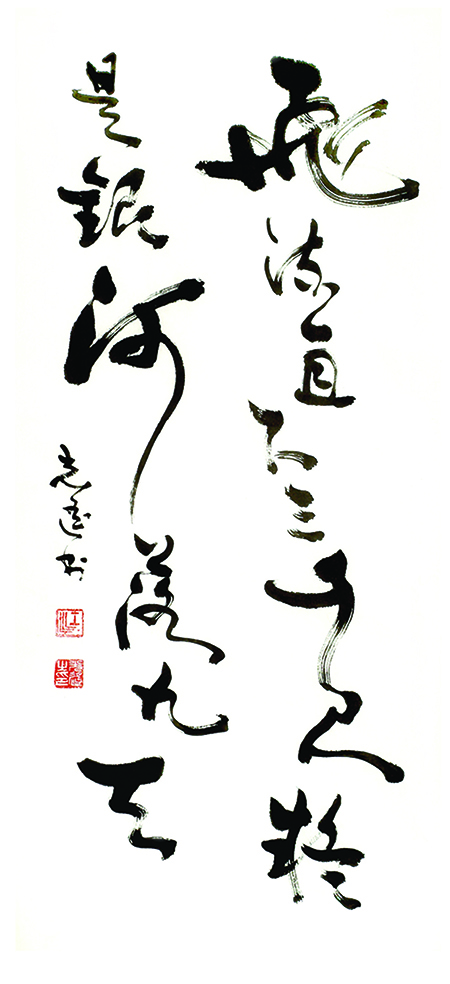 飛流直下三千尺疑
是銀河落九天
志遠书